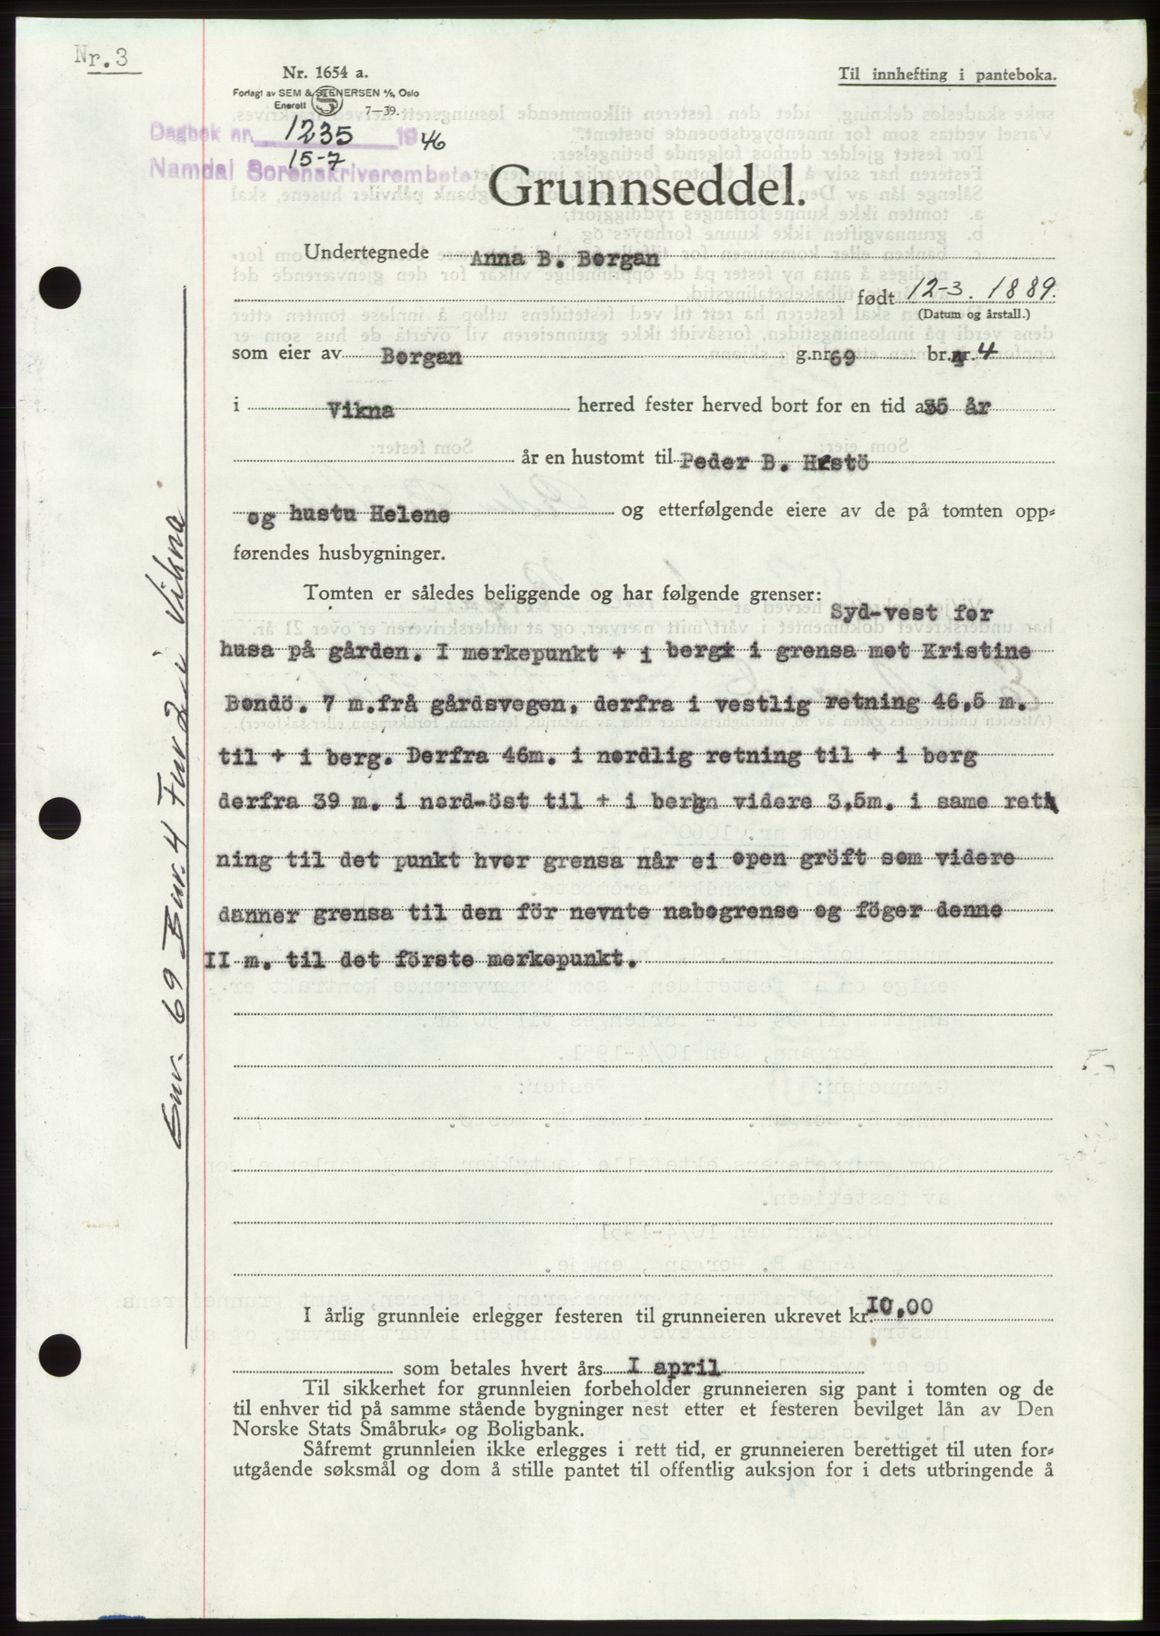 Nr. 3
Nr. 1654 a.
Forlagt av SEM & STENERSEN A/S, Oslo
Enerett 7—39.
Til innhefting i panteboka.
Dagbok nr. 1235 1946
15-7
Namdal Sorenskriverembete
Grunnseddel.
Undertegnede Anna B. Borgan
født 12-3. 1889.
(Datum og årstall.)
som eier av Borgan g.nr. 69 br.nr. 4
i Vikna herred fester herved bort for en tid av 35 år
år en hustomt til Peder B. Hestö
og hustu Helene og etterfølgende eiere av de på tomten opp-
førendes husbygninger.
Tomten er således beliggende og har følgende grenser: Syd-vest for
husa på gården. I merkepunkt + i berg i grensa mot Kristine
Bondö. 7 m.frå gårdsvegen, derfra i vestlig retning 46,5 m.
til + i berg. Derfra 46m. i nordlig retning til + i berg
derfra 39 m. i nord-öst til + i berg videre 3,5m. i same ret
ning til det punkt hvor grensa når ei open gröft som videre
danner grensa til den för nevnte nabogrense og föger denne
II m. til det förste merkepunkt.
I årlig grunnleie erlegger festeren til grunneieren ukrevet kr. I0,00
som betales hvert års I april
Til sikkerhet for grunnleien forbeholder grunneieren sig pant i tomten og de
til enhver tid på samme stående bygninger nest etter et festeren bevilget lån av Den
Norske Stats Småbruk- og Boligbank.
Såfremt grunnleien ikke erlegges i rett tid, er grunneieren berettiget til uten for-
utgående søksmål og dom å stille pantet til offentlig auksjon for i dets utbringende å
Gnr. 69 Bnr. 4 i Vikna